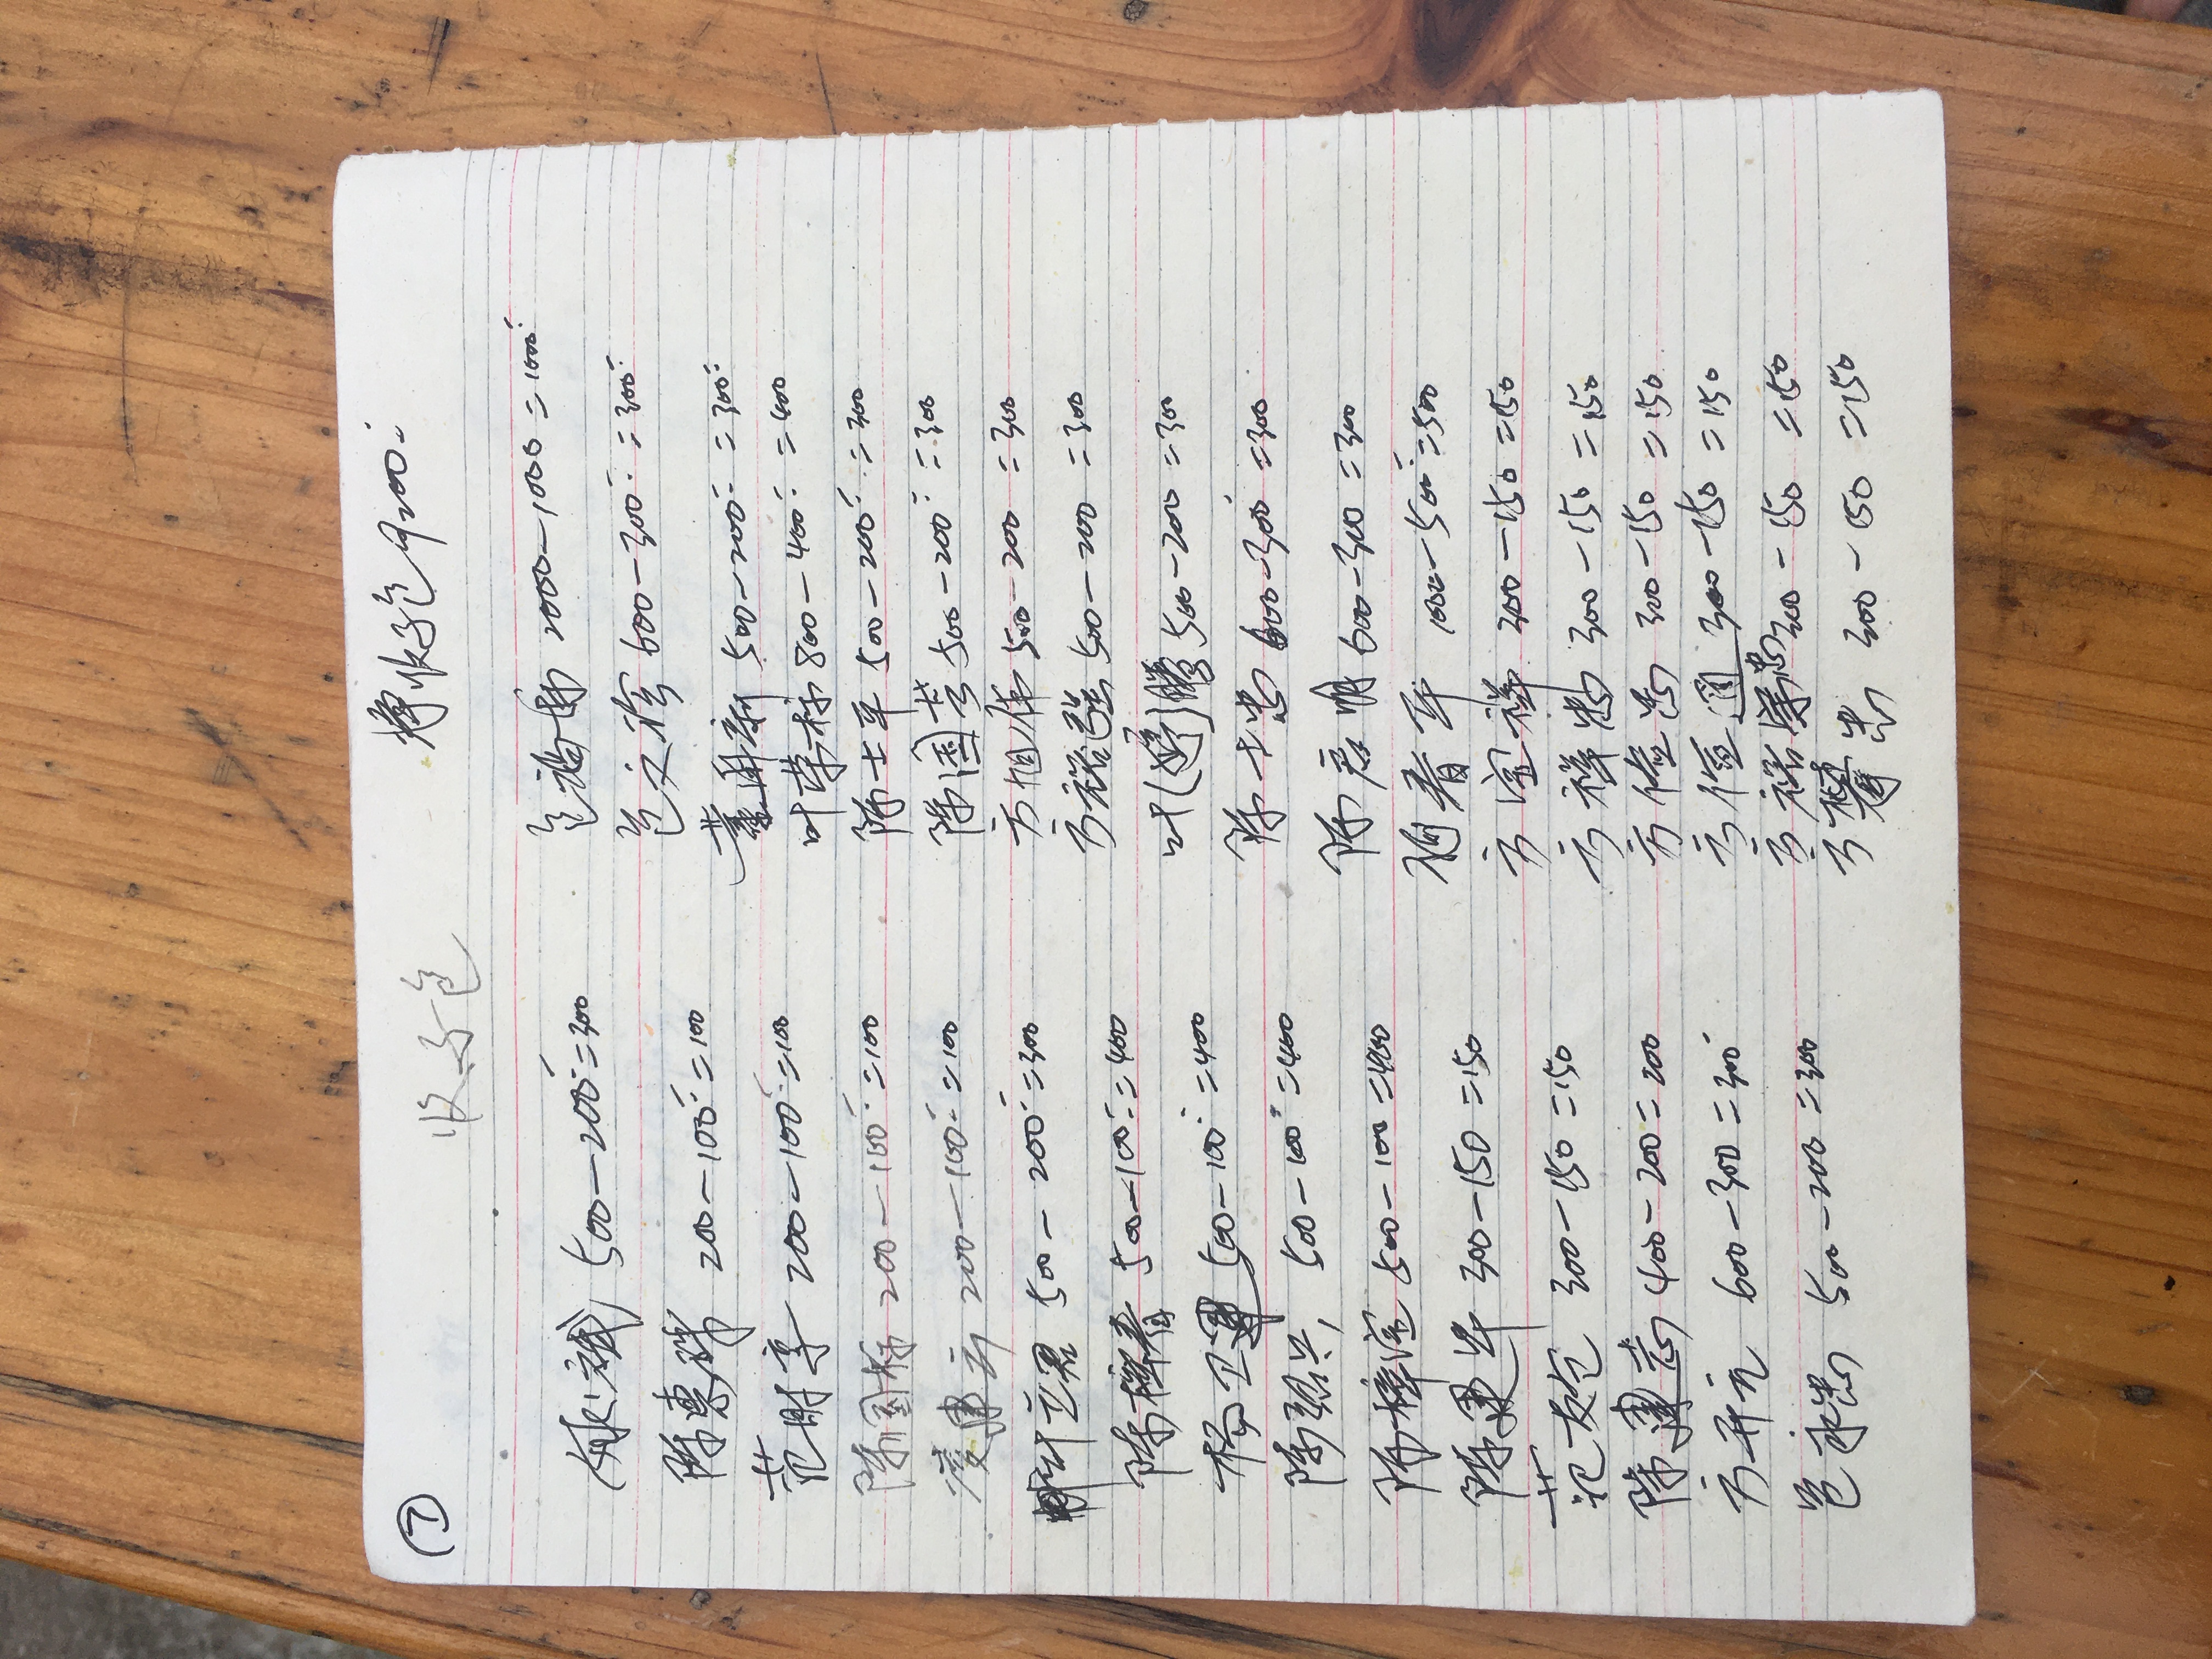 ①
收子包
净收子包9200
500-200=300
陈惠珠 200-100=100
范财享 200-100=100
陈国标 200-100=100
凌建云 200-100=100
叶立君 500-200=300
陈樟春 500-100=400
杨卫军 500-100=400
陈绍兴 500-100=400
陈樟宝 500-100=400
陈建华 300-150=150
范友仓 300-150=150
陈建志 400-200=200
方开元 600-300=300
包永忠 500-200=300
包 2000-1000=1000
包文珍 600-300=300
董 新 500-200=300
叶荣标 800-400=400
陈士平 500-200=300
陈国芳 500-200=300
方旭伟 500-200=300
方裕强 500-200=300
叶 腾 500-200=300
陈士忠 600-300=300
陈启明 600-300=300
春平 1000-500=500
方宝祥 300-150=150
方祥忠 300-150=150
方 忠 300-150=150
方 通 300-150=150
方裕 忠 300-150=150
方 忠 300-150=150